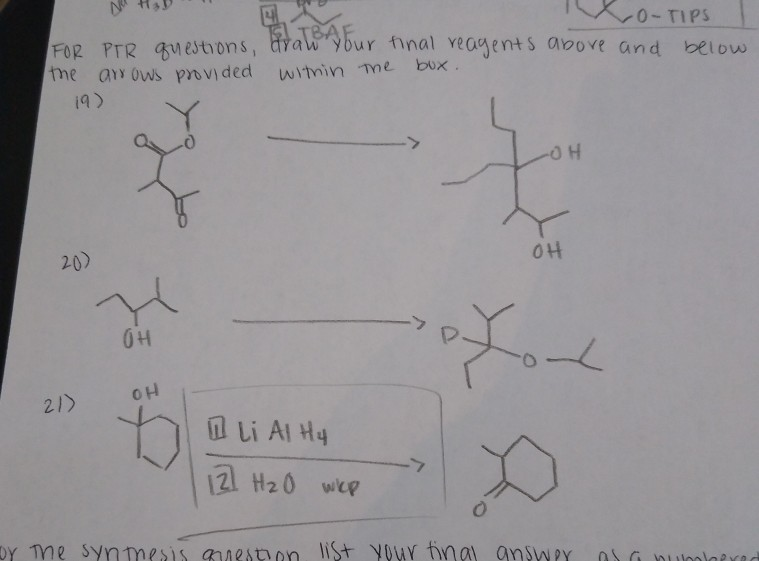 4
5 TBAF
O-TIPS
FOR PTR questions, draw your final reagents above and below
the arrows provided within the box.
19)
O
O
O
OH
OH
20)
OH
D
O
21)
OH
1 Li Al H4
2 H2O wkp
O
or the synthesis question list your final answer as a numbered